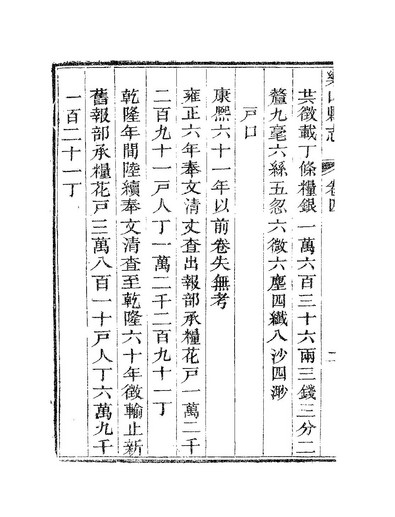 樂山縣志 卷四
共徵載丁條糧銀一萬六百三十六兩三錢三分二
釐九毫六絲五忽六微六塵四纖八沙四渺
戸口
康熙六十一年以前卷失無考
雍正六年奉文清丈查出報部承糧花戸一萬二千
二百九十一戸人丁一萬二千二百九十一丁
乾隆年間陸續奉文清查至乾隆六十年徵輸止新
舊報部承糧花戸三萬八百一十戸人丁六萬九千
一百二十一丁